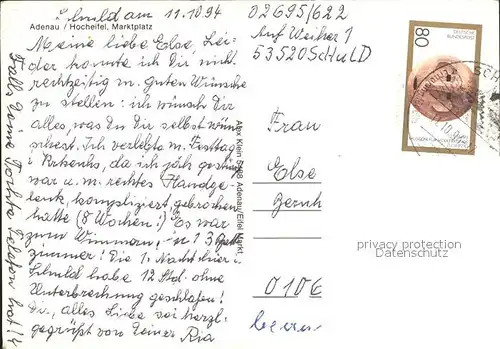 Schuld am 11.10.94
Adenau / Hocheifel, Marktplatz
Meine liebe Else, Lei-
der konnte ich Dir nicht
rechtzeitig m. guten Wünsche
zu stellen: ich wünsch Dir
alles, was Du Dir selbst wün-
schest. Ich verlebte m. Festtag
i. Krkenhs, da ich jäh gestürzt
war u. m. rechtes Handge-
lenk, kompliziert, gebrochen
hatte (8 Wochen!) Es war
zum Wimmern, i
zimmer! Die 1. Nacht hier i.
Schuld habe 12 Std. ohne
Unterbrechung geschlafen!
Dir, alles Liebe sei herzl.
gegrüßt von Deiner Ria
Falls Deine Tochter Telefon hat!
02695/622
Auf Weiher 1
53520 SCHULD
Alex Klein 5488 Adenau/Eifel Markt
Frau
Else
0106
80
privacy protection
Datenschutz